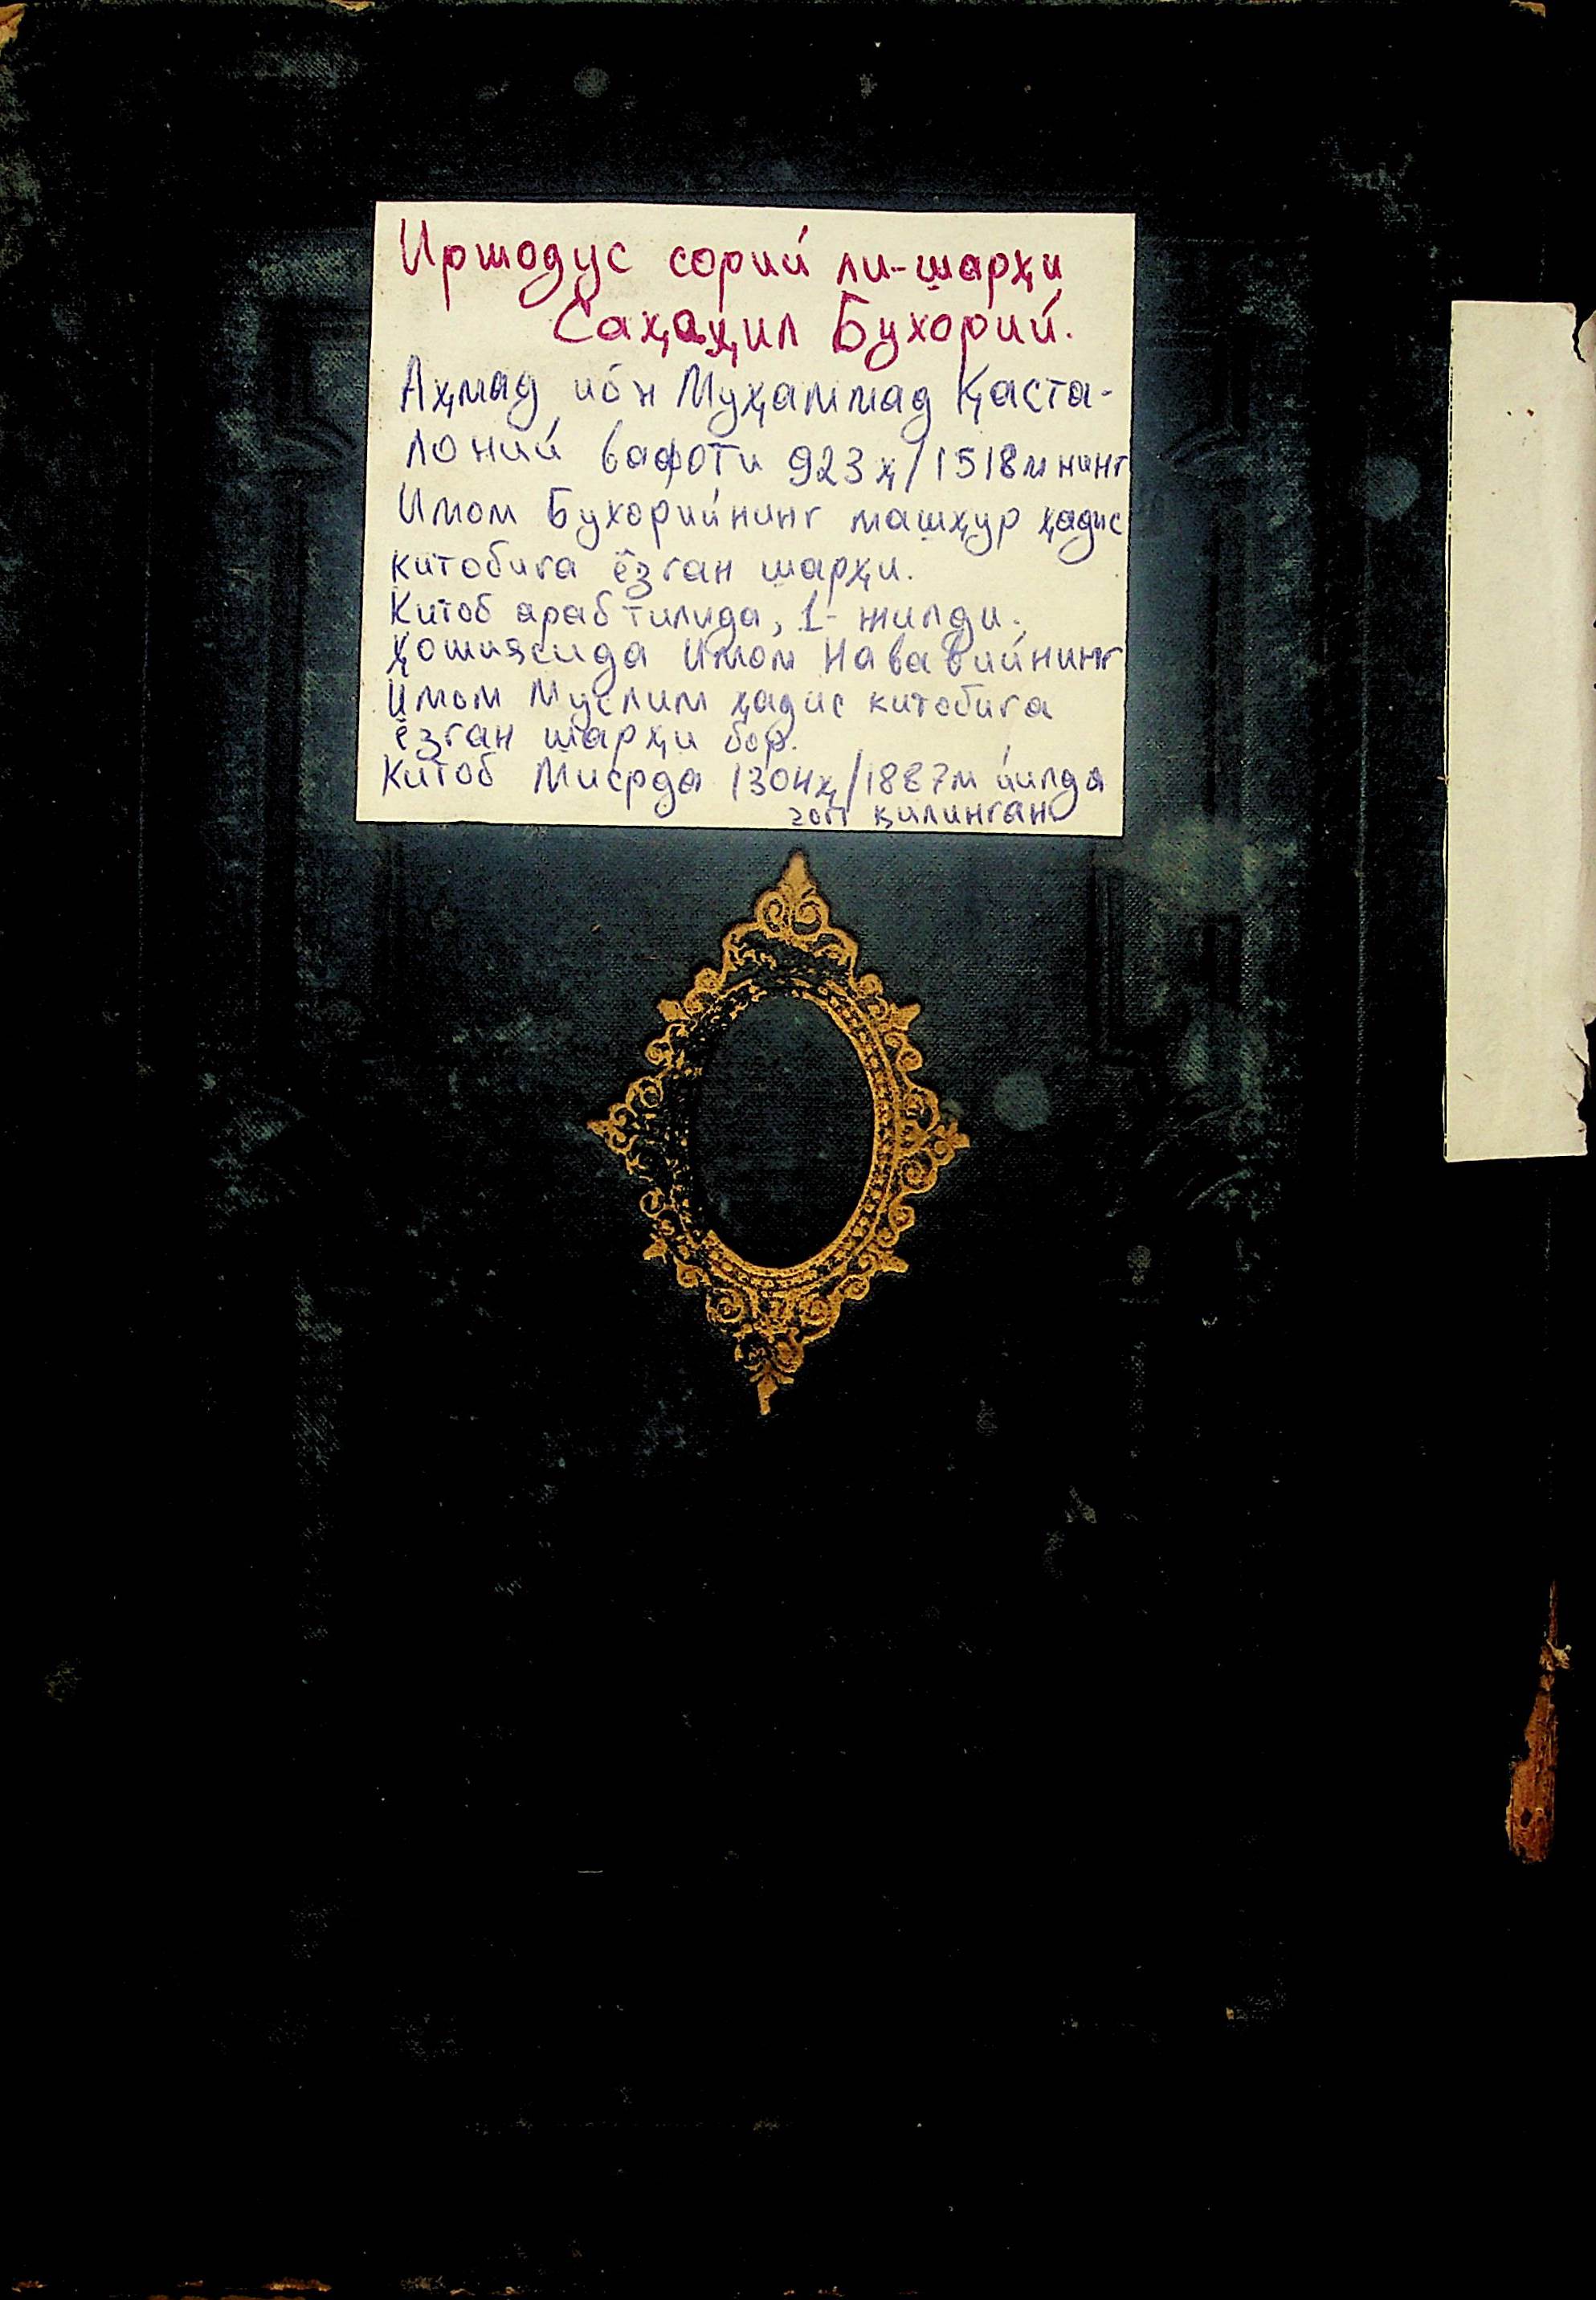 Иршодус сорий ли-шарҳи
Саҳаҳил Бухорий.
Аҳмад ибн Муҳаммад Қаста-
лоний вафоти 923ҳ/1518м нинг
Имом Бухорийнинг машҳур ҳадис
китобига ёзган шарҳи.
Китоб араб тилида, 1- жилди.
Ҳошиясида Имом Нававийнинг
Имом Муслим ҳадис китобига
ёзган шарҳи бор.
Китоб Мисрда 1304ҳ/1887м йилда
қилинган